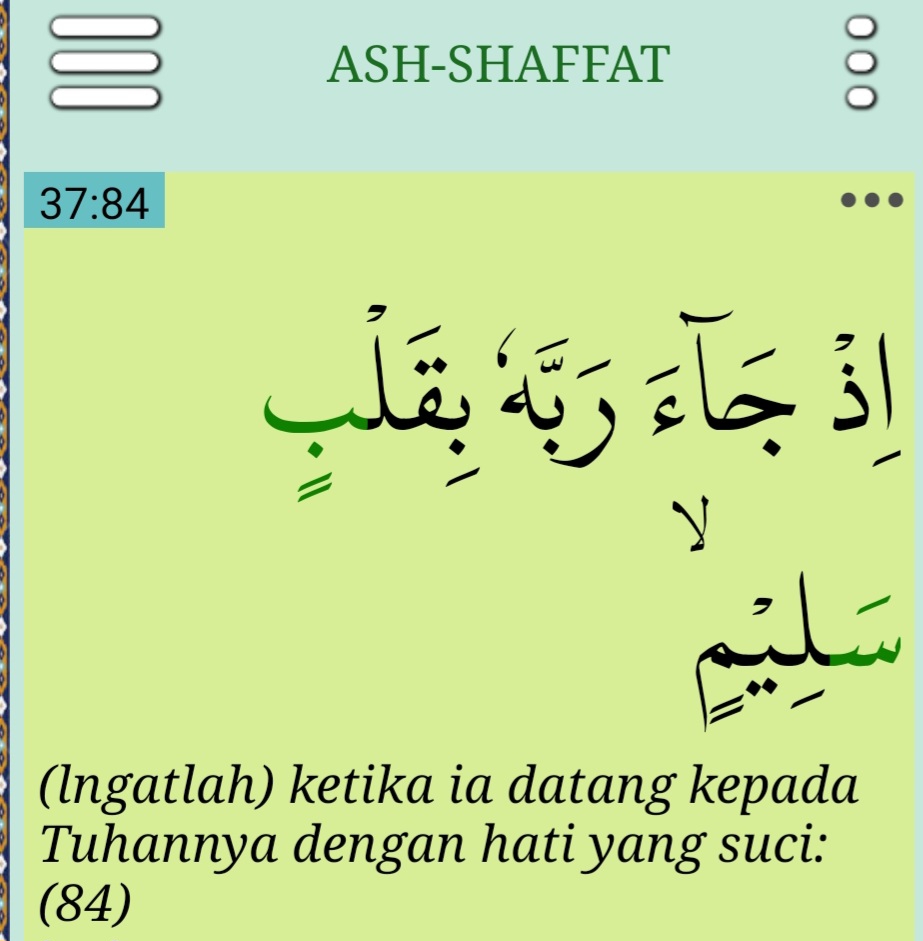 ASH-SHAFFAT
37:84
اِذْ جَآءَ رَبَّهٗ بِقَلْبٍ
سَلِيْمٍۙ
(lngatlah) ketika ia datang kepada
Tuhannya dengan hati yang suci:
(84)